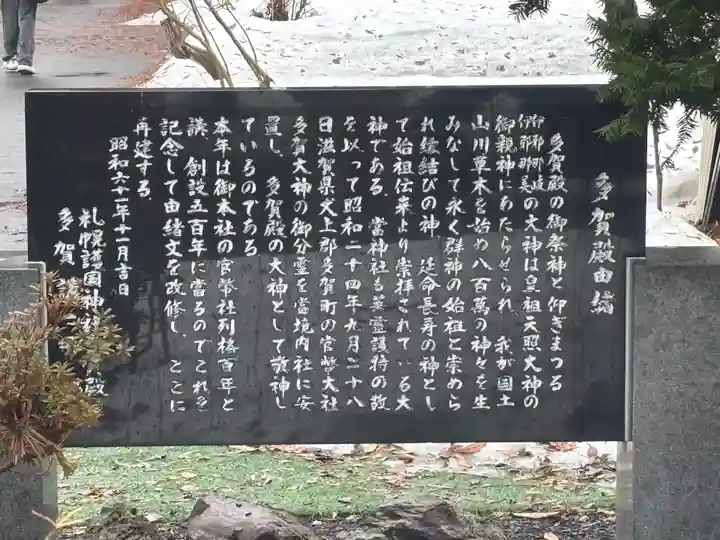 多賀殿由緒
多賀殿の御祭神と仰ぎまつる
伊邪那岐
伊邪那美の大神は皇祖天照大神の
御親神にあたらせられ、我が国土
山川草木を始め八百萬の神々を生
みなして永く群神の始祖と崇めら
れ縁結びの神、延命長寿の神とし
て始祖仕来より崇拝されている大
神である。當神社も英霊護持の故
を以って昭和二十四年九月二十八
日滋賀県犬上郡多賀町の官幣大社
多賀大神の御分霊を當境内社に安
置し、多賀殿の大神として敬神し
ているのである
本年は御本社の官幣社列格百年と
講、創設五百年に當るのでこれを
記念して由緒文を改修し、ここに
再建する。
昭和六十一年十一月吉日
札幌護国神社 殿
多賀